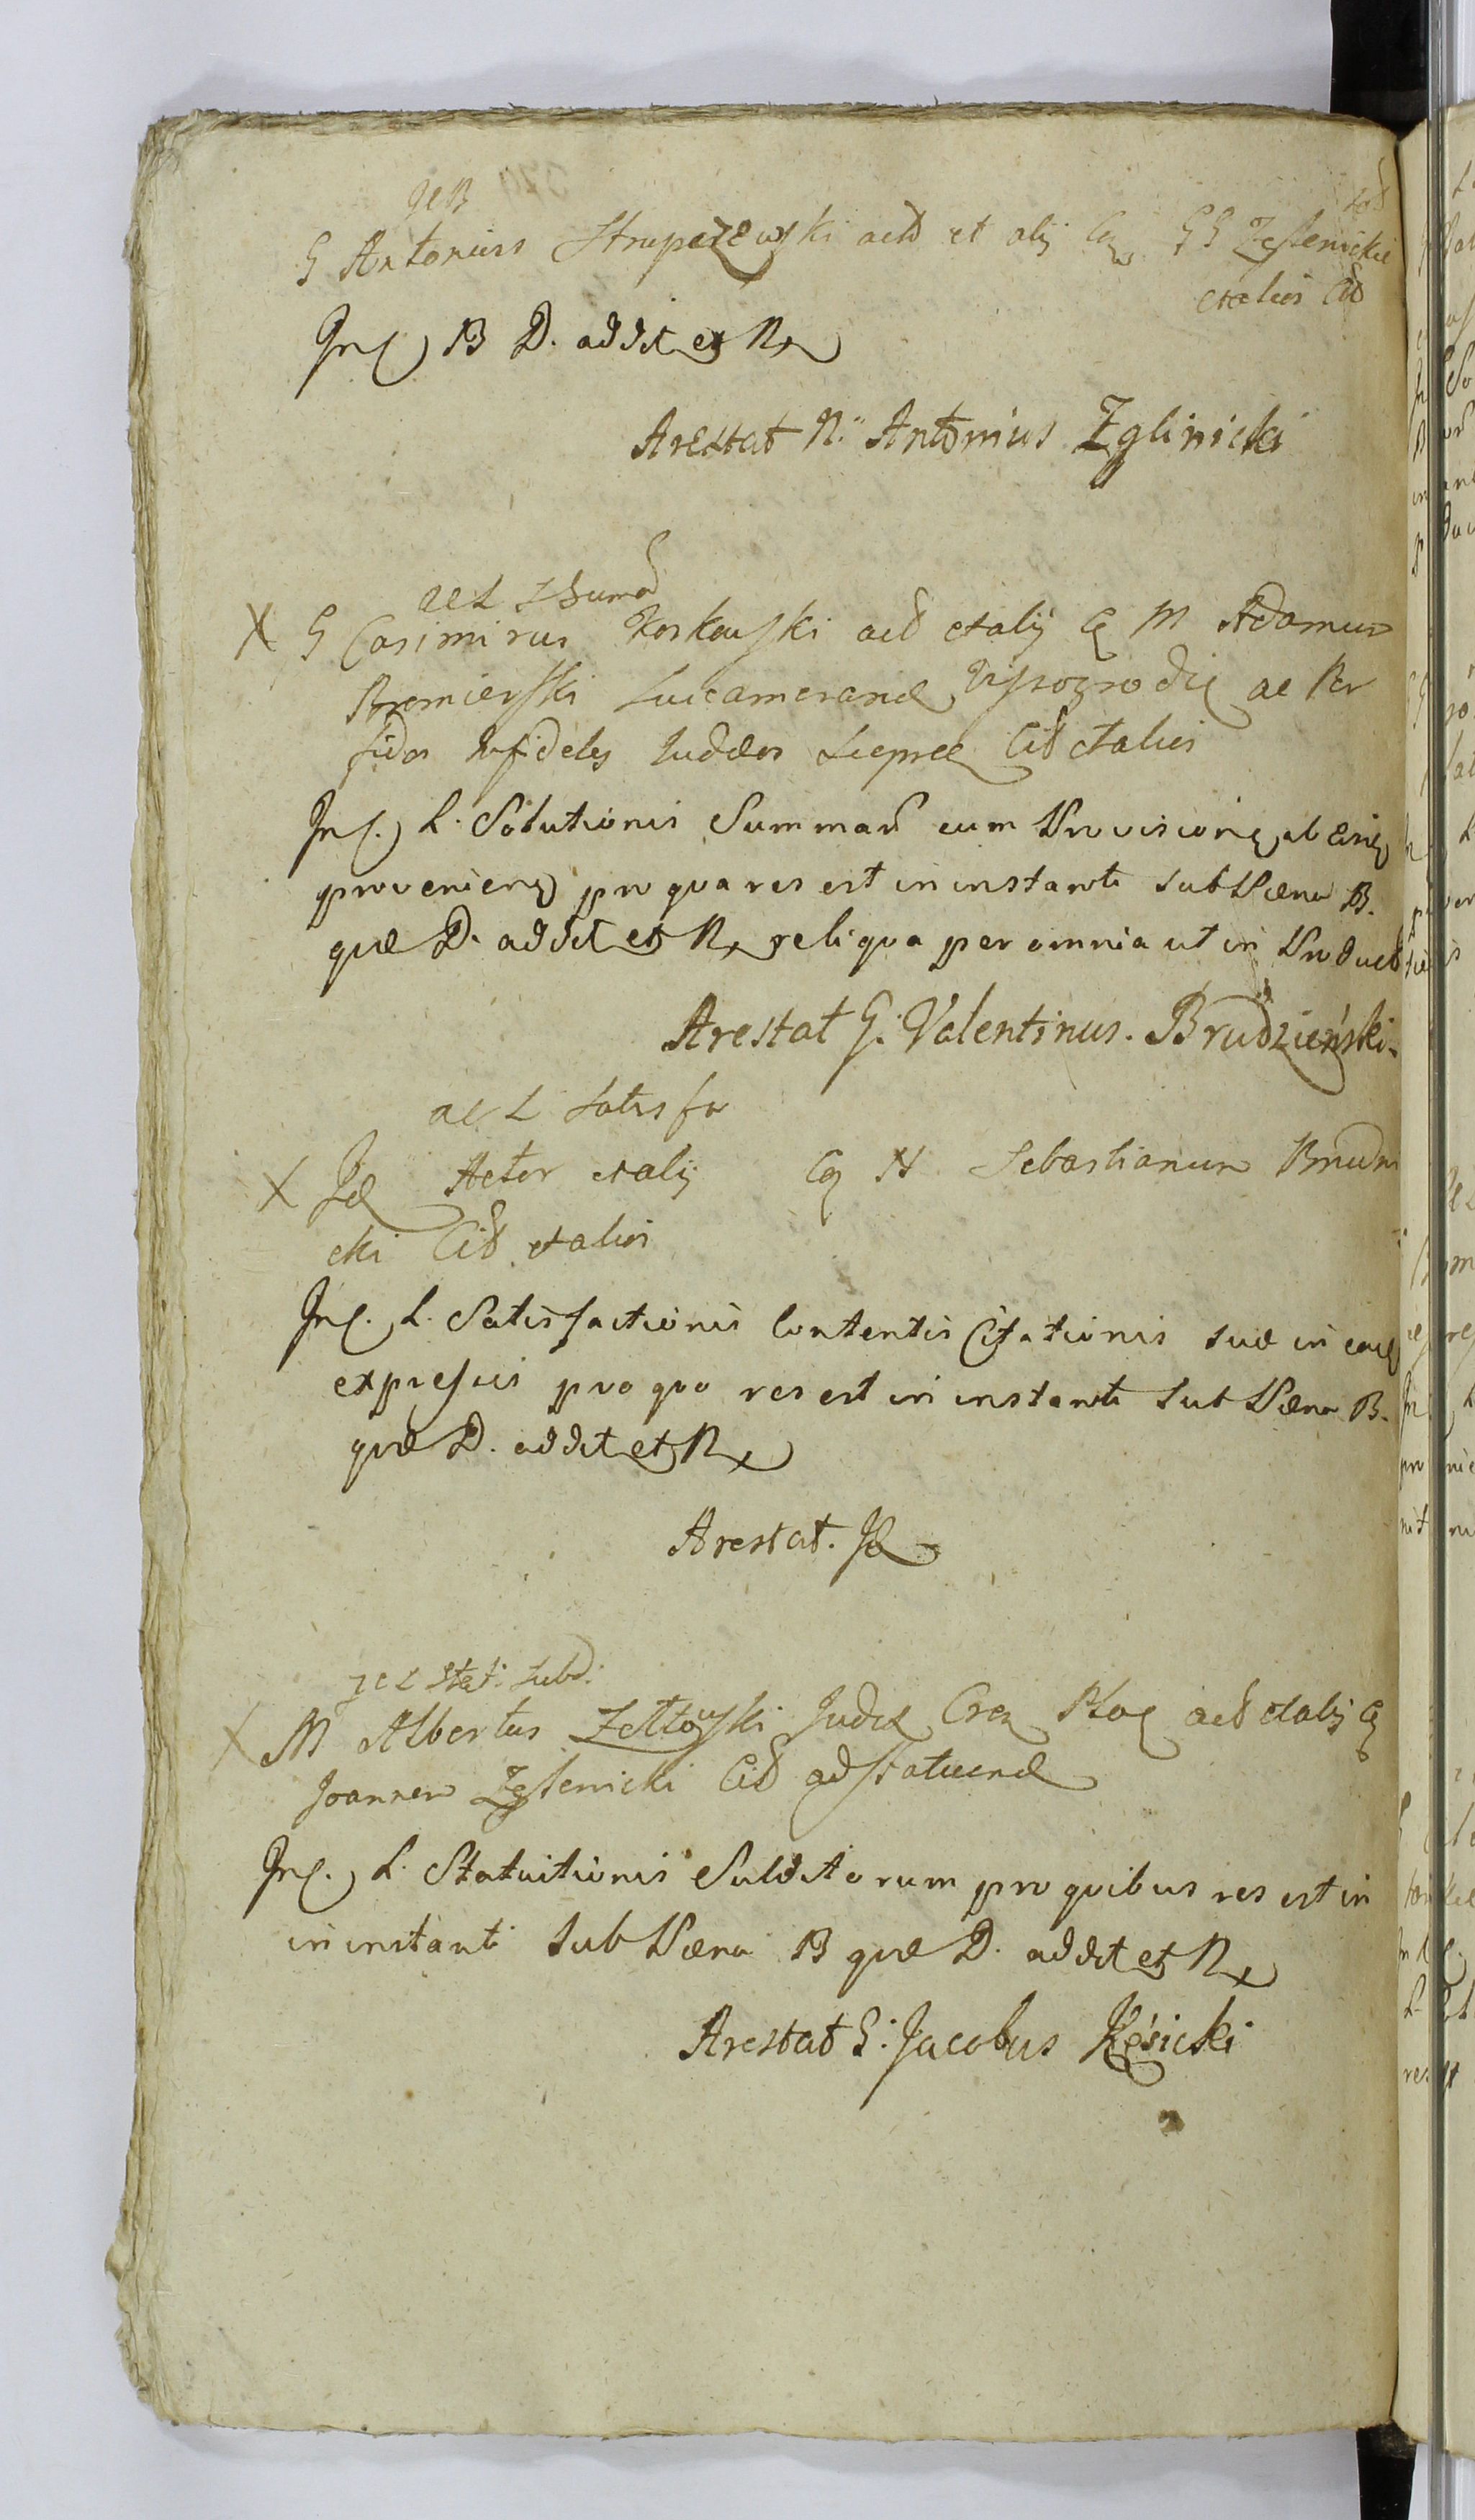 G Antonius Strupczewski act et alij Cq GG Zglenickie
et alios Cit
In C B D. addit et R
Arestat N. Antonius Zglinicki
ac L S Sumar
X G Casimirus Koskowski act et alij Cq M Adamum
Bromierski Succamerand Vissogrodie ac Per
fidos Infideles Judæos Sieprce Cit et alios
In C. L. Solutionis Summarum cum Provisione ab eisq
provenienq pro qua res est in instanti sub Pæna B.
quæ D. addit et R reliqua per omnia ut in Product
Arestat G. Valentinus. Brudzieński.
ac L Satisfa
X Id Actor et alij Cq N Sebastianum Brudni
cki Cit et alios
In C. L. Satisfactionis Contentis Citationis suæ in eaq
expressis pro quo res est in instanti sub Pæna B.
quæ D. addit et R
Arestat. Id
ac L Stat. Subd.
X M Albertus Zełtowski Judex Cren Ploc act et alij Cq
Joannem Zglenicki Cit ad statuend
In C. L. Statuitionis Subditorum pro quibus res est in
in instanti sub Pæna B quæ D. addit et R
Arestat G. Jacobus Kęsicki